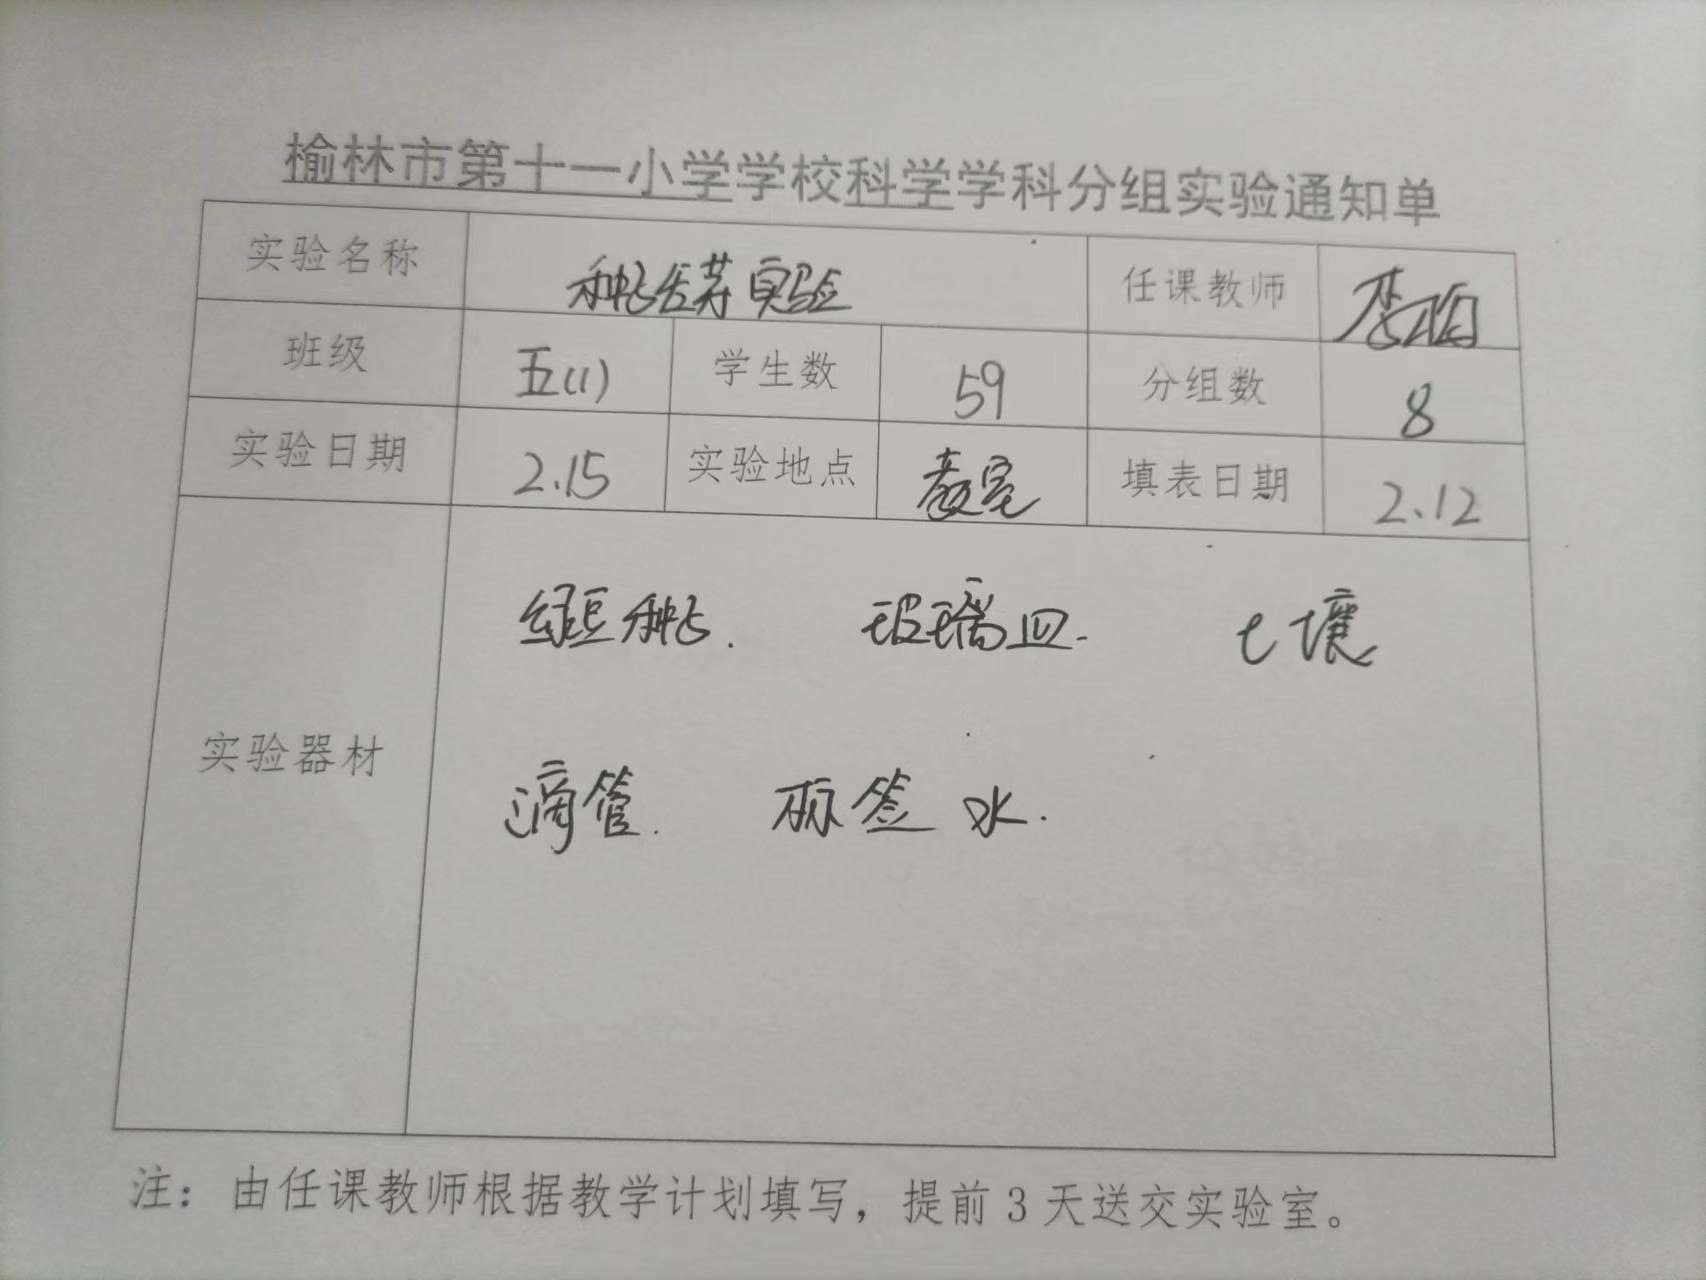 榆林市第十一小学学校科学学科分组实验通知单
实验名称 种子发芽实验 任课教师 李
班级 五(1) 学生数 59 分组数 8
实验日期 2.15 实验地点 教室 填表日期 2.12
绿豆种子. 玻璃皿. 土壤
实验器材
滴管. 标签 水.
注：由任课教师根据教学计划填写，提前3天送交实验室。